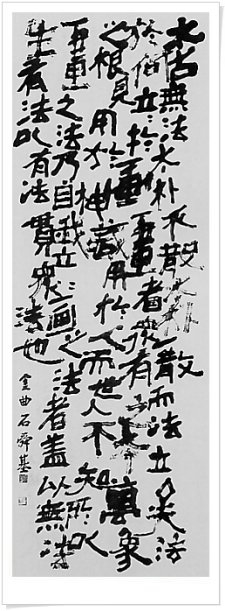 太古無法太朴不散太朴一散而法立矣法
於何立立於一畫一畫者眾有之本萬象
之根見用於神藏用於人而世人不知所以
一畫之法乃自我立〻一画之法者蓋以無法
生有法以有法貫眾法也
石舜基